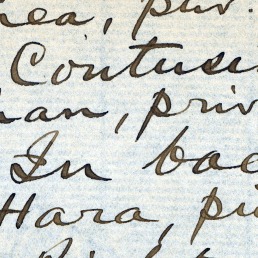 hea, priv.
Contusi
han, priv
In bac
Hara, pri